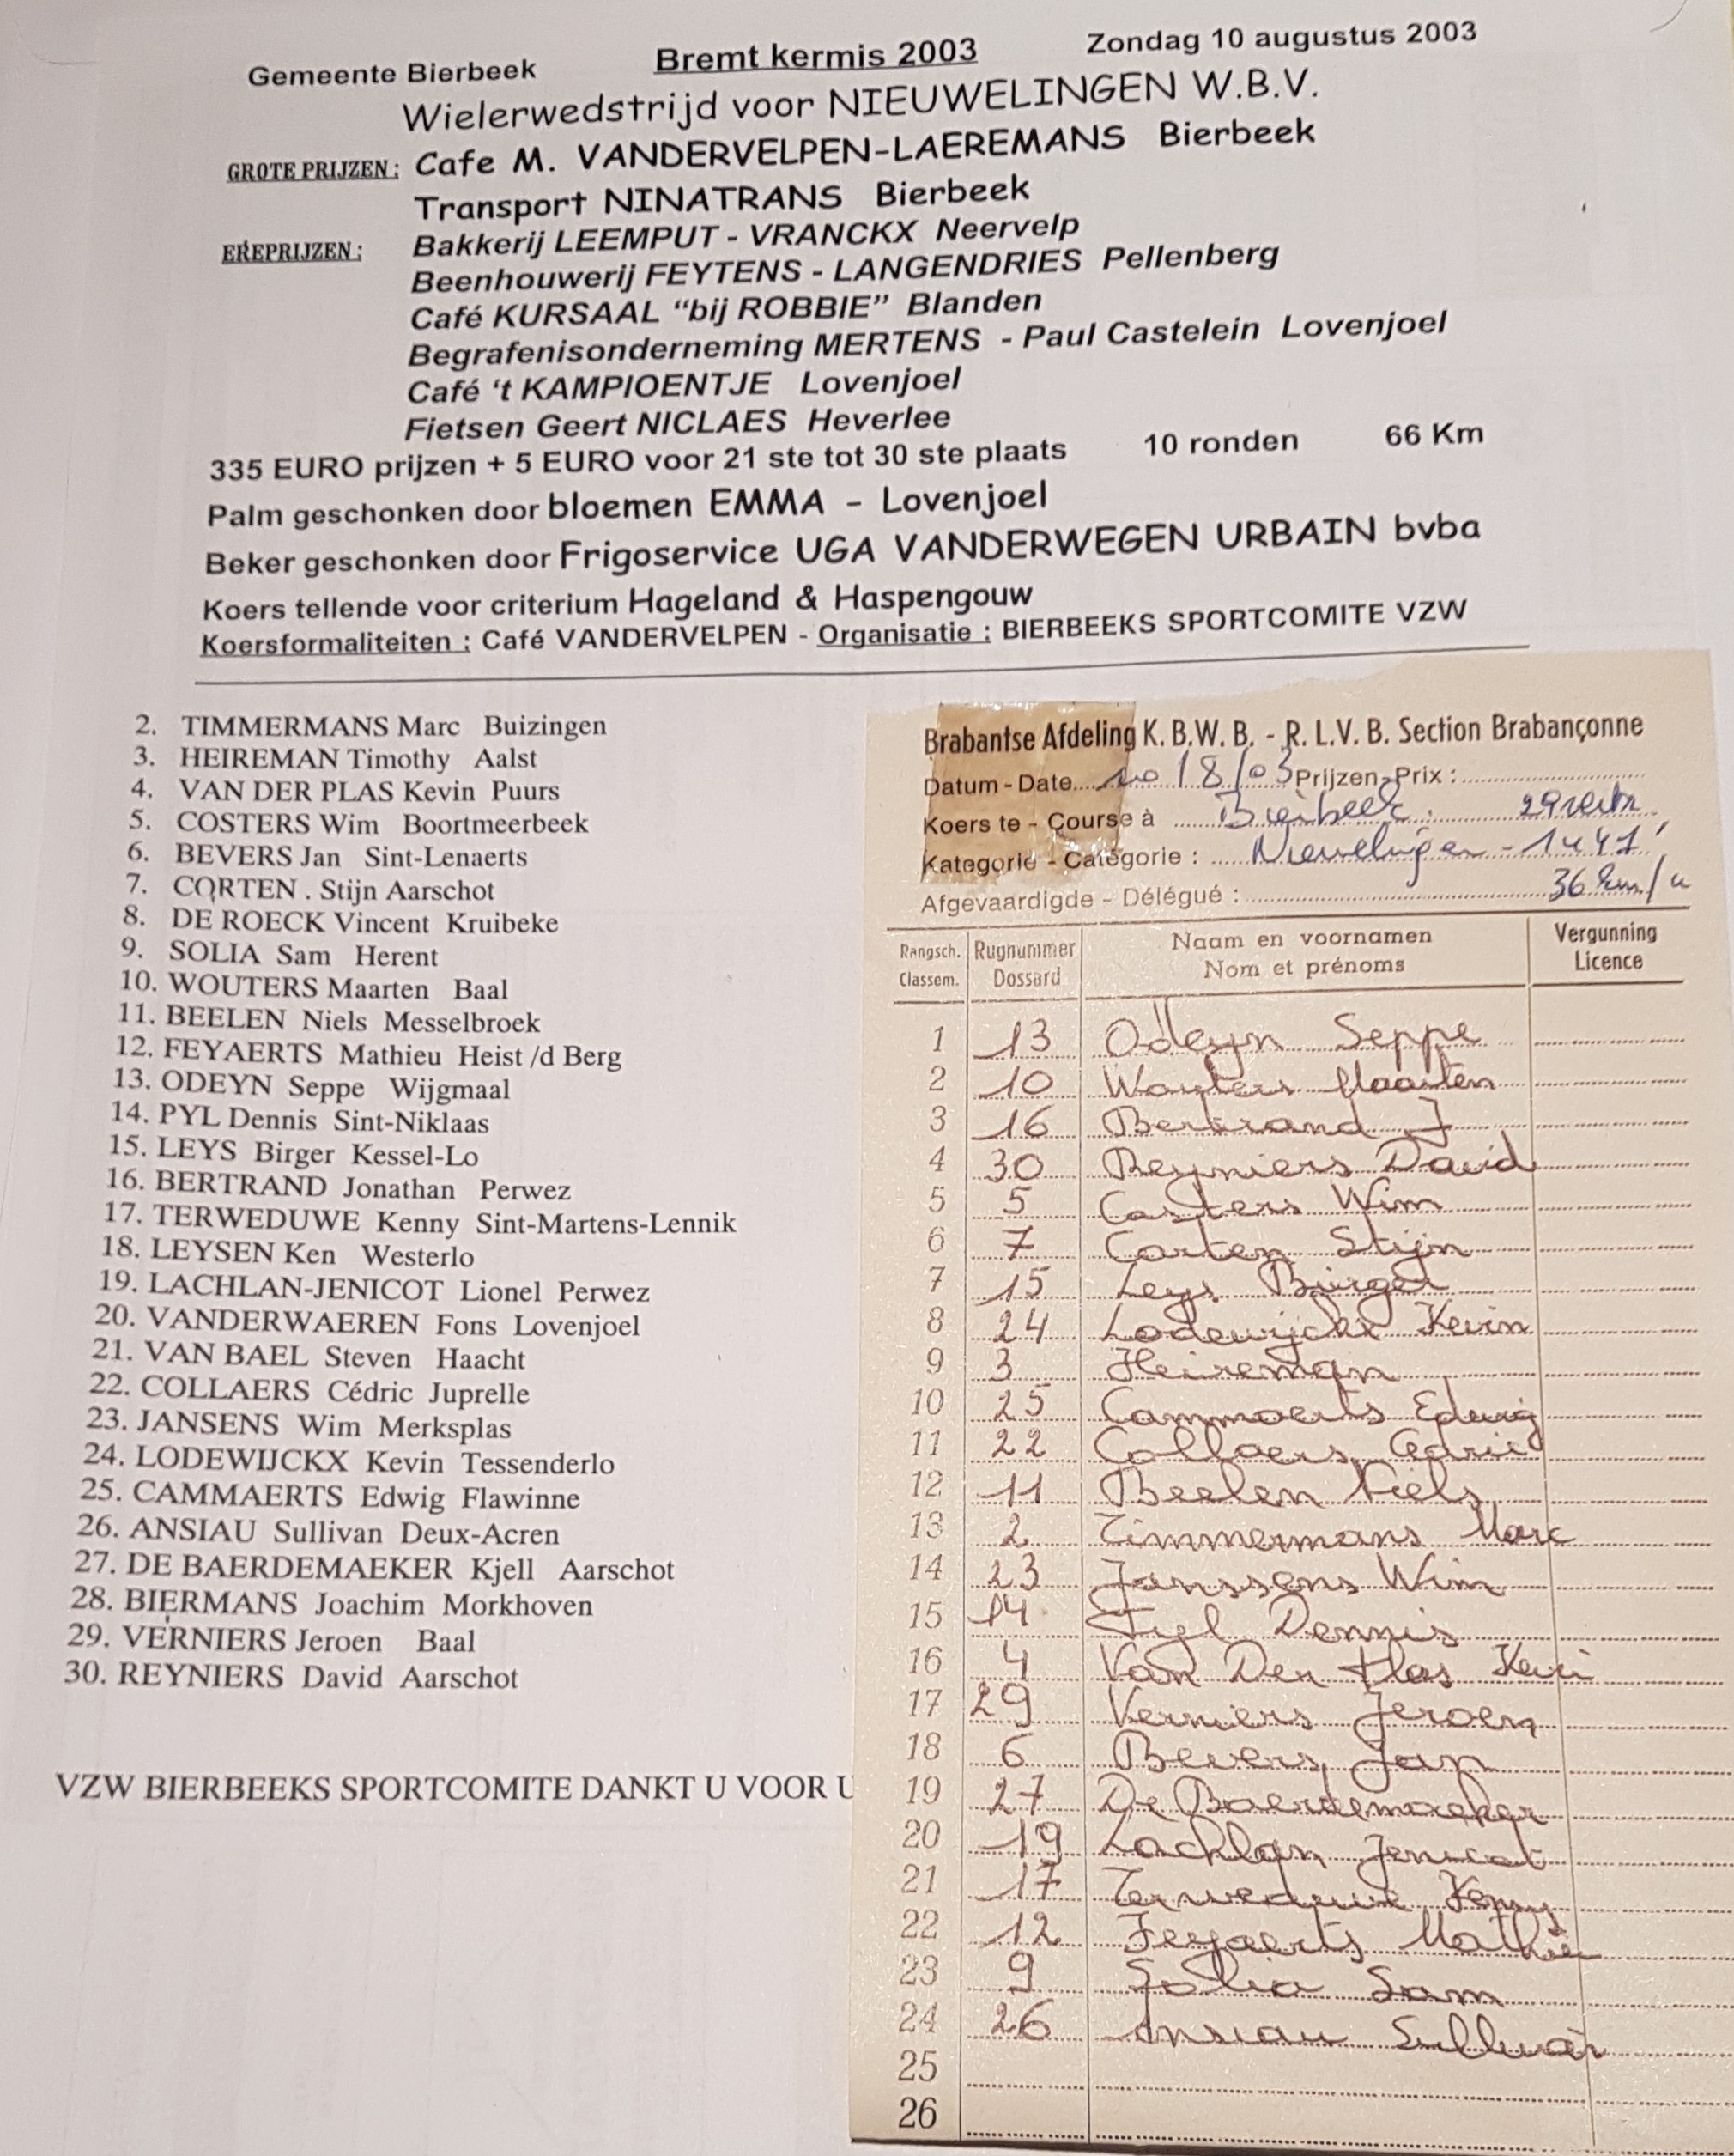 Gemeente Bierbeek Bremt kermis 2003 Zondag 10 augustus 2003
Wielerwedstrijd voor NIEUWELINGEN W.B.V.
GROTE PRIJZEN : Cafe M. VANDERVELPEN-LAEREMANS Bierbeek
Transport NINATRANS Bierbeek
EREPRIJZEN : Bakkerij LEEMPUT - VRANCKX Neervelp
Beenhouwerij FEYTENS - LANGENDRIES Pellenberg
Café KURSAAL "bij ROBBIE" Blanden
Begrafenisonderneming MERTENS - Paul Castelein Lovenjoel
Café 't KAMPIOENTJE Lovenjoel
Fietsen Geert NICLAES Heverlee
335 EURO prijzen + 5 EURO voor 21 ste tot 30 ste plaats 10 ronden 66 Km
Palm geschonken door bloemen EMMA - Lovenjoel
Beker geschonken door Frigoservice UGA VANDERWEGEN URBAIN bvba
Koers tellende voor criterium Hageland & Haspengouw
Koersformaliteiten : Café VANDERVELPEN - Organisatie : BIERBEEKS SPORTCOMITE VZW
2. TIMMERMANS Marc Buizingen
3. HEIREMAN Timothy Aalst
4. VAN DER PLAS Kevin Puurs
5. COSTERS Wim Boortmeerbeek
6. BEVERS Jan Sint-Lenaerts
7. CORTEN . Stijn Aarschot
8. DE ROECK Vincent Kruibeke
9. SOLIA Sam Herent
10. WOUTERS Maarten Baal
11. BEELEN Niels Messelbroek
12. FEYAERTS Mathieu Heist /d Berg
13. ODEYN Seppe Wijgmaal
14. PYL Dennis Sint-Niklaas
15. LEYS Birger Kessel-Lo
16. BERTRAND Jonathan Perwez
17. TERWEDUWE Kenny Sint-Martens-Lennik
18. LEYSEN Ken Westerlo
19. LACHLAN-JENICOT Lionel Perwez
20. VANDERWAEREN Fons Lovenjoel
21. VAN BAEL Steven Haacht
22. COLLAERS Cédric Juprelle
23. JANSENS Wim Merksplas
24. LODEWIJCKX Kevin Tessenderlo
25. CAMMAERTS Edwig Flawinne
26. ANSIAU Sullivan Deux-Acren
27. DE BAERDEMAEKER Kjell Aarschot
28. BIERMANS Joachim Morkhoven
29. VERNIERS Jeroen Baal
30. REYNIERS David Aarschot
VZW BIERBEEKS SPORTCOMITE DANKT U VOOR U
Brabantse Afdeling K.B.W.B. - R.L.V.B. Section Brabançonne
Datum - Date 10/8/03 Prijzen - Prix :
Koers te - Course à Bierbeek. 29
Kategorie - Catégorie : Nieuwelingen - 1u47'
Afgevaardigde - Délégué : 36 km/u
Rangsch. Classem. Rugnummer Dossard Naam en voornamen Nom et prénoms Vergunning Licence
1 13 Odeyn Seppe
2 10 Wouters Maarten
3 16 Bertrand J
4 30 Reyniers David
5 5 Costers Wim
6 7 Corten Stijn
7 15 Leys Birger
8 24 Lodewijckx Kevin
9 3 Heireman
10 25 Cammaerts Edwig
11 22 Collaers Cedric
12 11 Beelen Niels
13 2 Timmermans Marc
14 23 Janssens Wim
15 14 Pyl Dennis
16 4 Van Der Plas Kevi
17 29 Verniers Jeroen
18 6 Bevers Jan
19 27 De Baerdemaeker
20 19 Lachlan Jenicot
21 17 Terweduwe Kenny
22 12 Feyaerts Mathieu
23 9 Solia Sam
24 26 Ansiau Sullivan
25
26